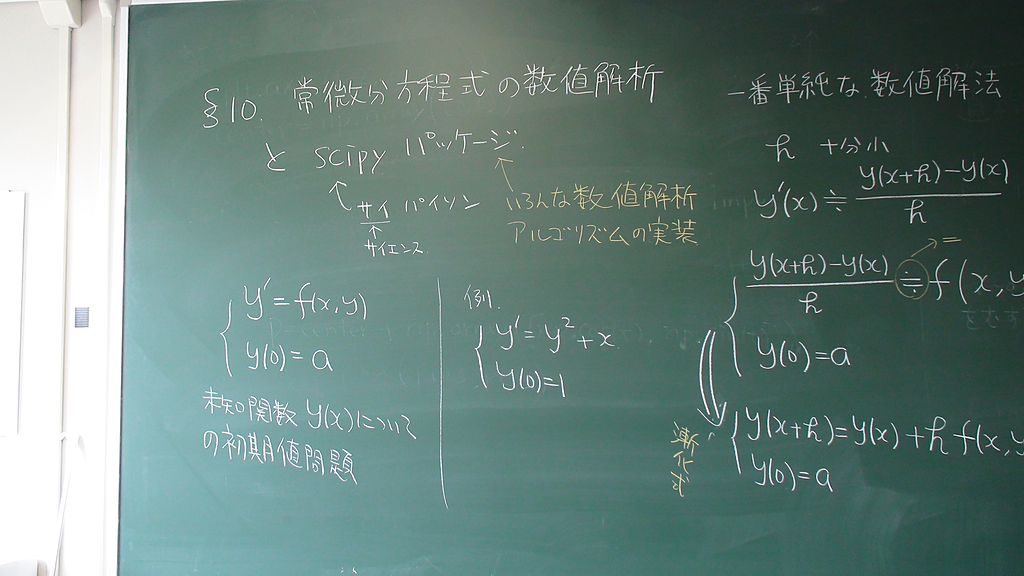 §10. 常微分方程式の数値解析
と scipy パッケージ.
サイ パイソン
サイエンス
いろんな数値解析
アルゴリズムの実装
y' = f(x, y)
y(0) = a
未知関数 y(x) について
の初期値問題
例.
y' = y² + x
y(0)=1
一番単純な数値解法
h 十分小
y'(x) ≒ (y(x+h)−y(x))/h
(y(x+h)−y(x))/h ≒ f(x, y
=
y(0)=a
漸化式
y(x+h)=y(x)+h f(x, y
y(0)=a